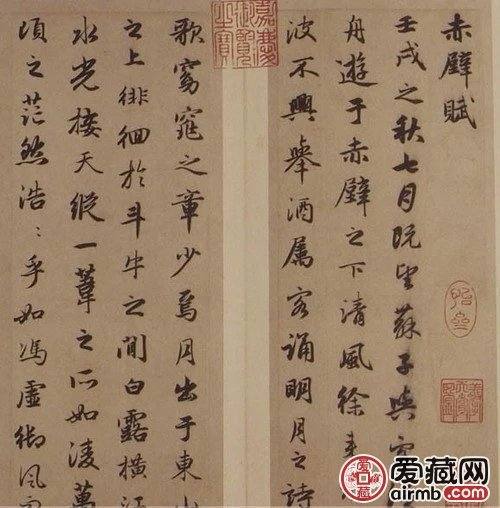 赤壁賦
壬戌之秋七月既望蘇子與客
舟遊于赤壁之下清風徐來
波不興舉酒屬客誦明月之詩
嘉慶御覽之寶
歌窈窕之章少焉月出于東山
之上徘徊於斗牛之間白露橫江
水光接天縱一葦之所如淩萬
頃之茫然浩〻乎如馮虛御風而
爱藏网
airmb.com